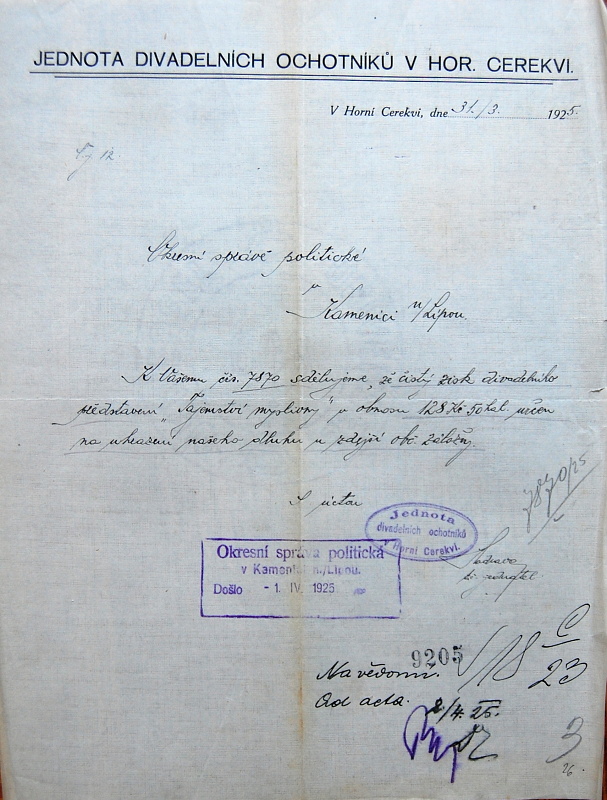 JEDNOTA DIVADELNÍCH OCHOTNÍKŮ V HOR. CEREKVI.
V Horní Cerekvi, dne 31./3. 1925.
Okresní správě politické
v
Kamenici n/Lipou.
K Vašemu čís. 7870 sdělujeme, že čistý zisk divadelního
představení „Tajemství myslivny" v obnosu 128 Kč 50 hal. určen
na uhražení našeho dluhu u zdejší obč. záložny.
S úctou
7870/25
Jednota
divadelních ochotníků
v Horní Cerekvi.
Okresní správa politická
v Kamenici n./Lipou.
Došlo - 1. IV. 1925
9205
Na vědomí.
18 C
23
Ad acta.
2/4. 25.
3
26.